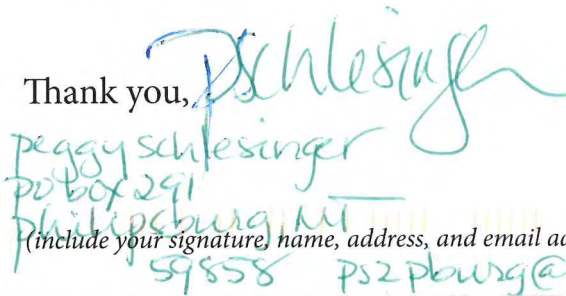 Thank you, PSchlesinger
peggy schlesinger
po box 291
philipsburg, MT
(include your signature, name, address, and email ad
59858 ps2pburg@